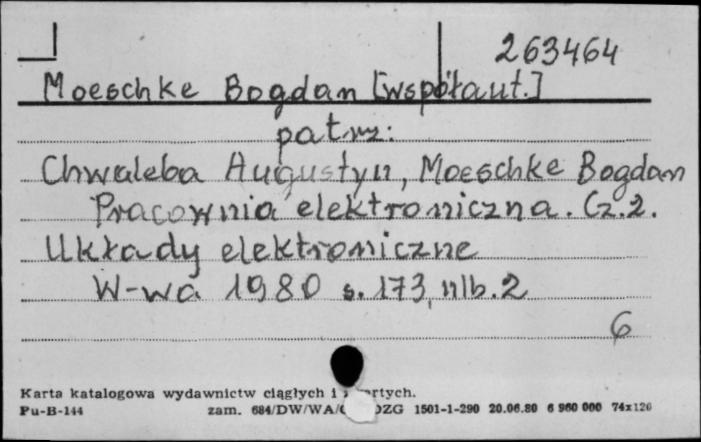 263464
Moeschke Bogdan [współaut.]
patrz:
Chwaleba Augustyn, Moeschke Bogdan
Pracownia elektroniczna. Cz.2.
Układy elektroniczne
W-wa 1980 s. 173, nlb. 2
6
Karta katalogowa wydawnictw ciągłych i
Pu-B-144 zam. 684/DW/WA/ DZG 1501-1-290 20.06.80 6 960 000 74x120